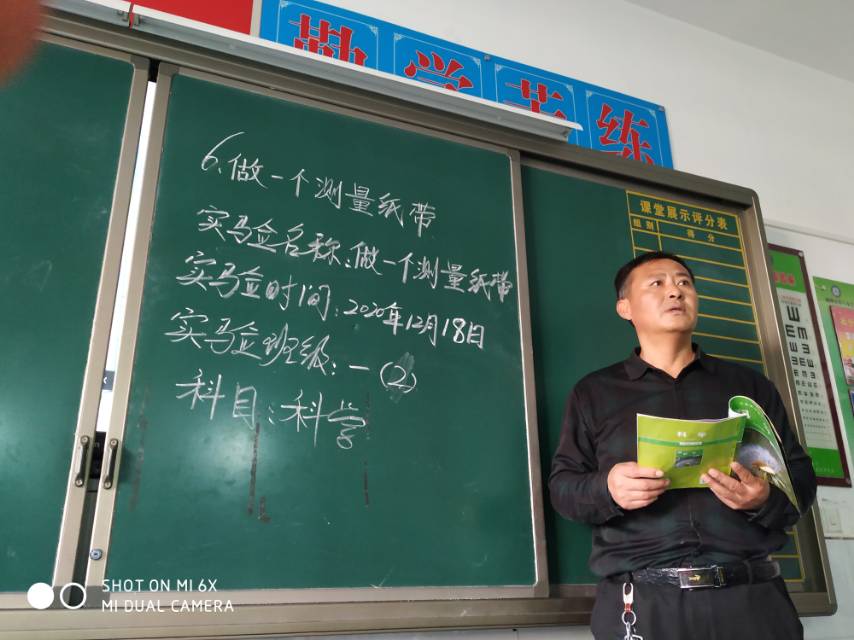 勤学苦练
6.做一个测量纸带
实验名称:做一个测量纸带
实验时间:2020年12月18日
实验班级:一(2)
科目:科学
课堂展示评分表
组别 得分
科学
SHOT ON MI 6X
MI DUAL CAMERA